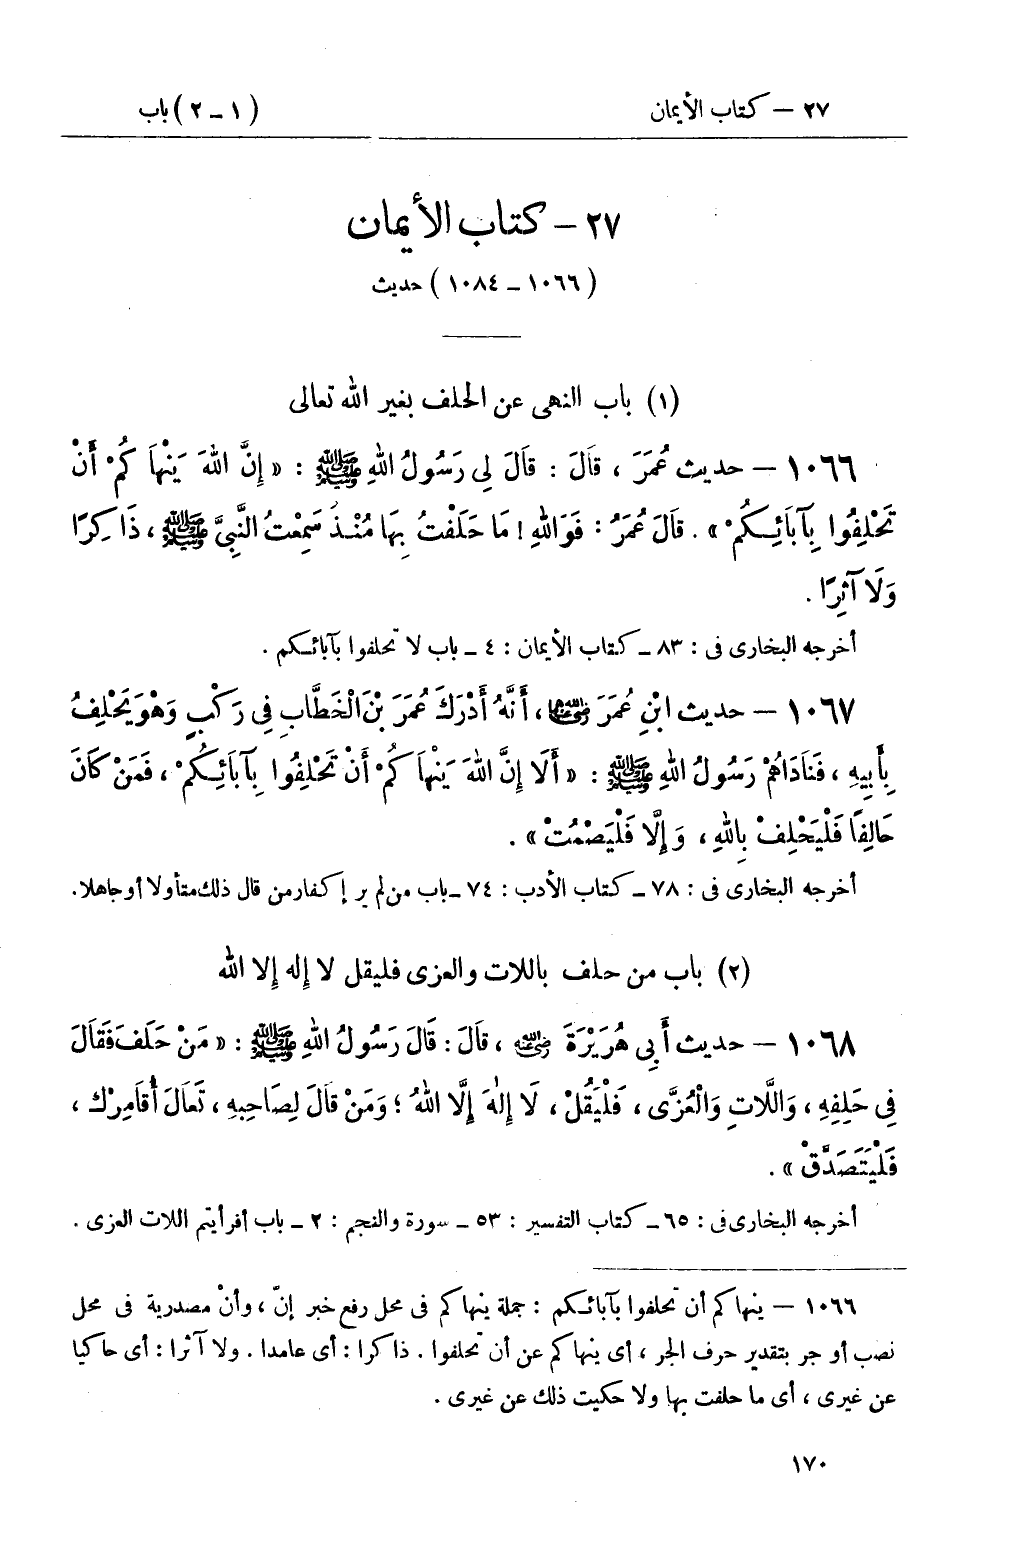 ٢٧ — كتاب الأيمان (١ – ٢) باب
٢٧ – كتاب الأيمان
(١٠٦٦ – ١٠٨٤) حديث
(١) باب النهى عن الحلف بغير الله تعالى
١٠٦٦ — حديث عُمَرَ ، قَالَ : قَالَ لِى رَسُولُ اللهِ ﷺ : « إِنَّ اللهَ يَنْهَا كُمْ أَنْ
تَحْلِفُوا بِآبَائِكُمْ » . قَالَ عُمَرُ : فَوَاللهِ ! مَا حَلَفْتُ بِهَا مُنْذُ سَمِعْتُ النَّبِىَّ ﷺ ، ذَاكِرًا
وَلَا آثِرًا .
أخرجه البخارى فى : ٨٣ – كتاب الأيمان : ٤ – باب لا تحلفوا بآبائكم .
١٠٦٧ — حديث ابْنِ عُمَرَ رضي الله عنهما ، أَنَّهُ أَدْرَكَ عُمَرَ بْنَ الْخَطَّابِ فِى رَكْبٍ وَهْوَ يَحْلِفُ
بِأَبِيهِ ، فَنَادَاهُمْ رَسُولُ اللهِ ﷺ : « أَلَا إِنَّ اللهَ يَنْهَا كُمْ أَنْ تَحْلِفُوا بِآبَائِكُمْ ، فَمَنْ كَانَ
حَالِفًا فَلْيَحْلِفْ بِاللهِ ، وَإِلَّا فَلْيَصْمُتْ » .
أخرجه البخارى فى : ٧٨ – كتاب الأدب : ٧٤ – باب من لم ير إكفار من قال ذلك متأولا أو جاهلا .
(٢) باب من حلف باللات والعزى فليقل لا إله إلا الله
١٠٦٨ — حديث أَبِى هُرَيْرَةَ رضي الله عنه ، قَالَ : قَالَ رَسُولُ اللهِ ﷺ : « مَنْ حَلَفَ فَقَالَ
فِى حَلِفِهِ ، وَاللَّاتِ وَالْعُزَّى ، فَلْيَقُلْ ، لَا إِلٰهَ إِلَّا اللهُ ؛ وَمَنْ قَالَ لِصَاحِبِهِ ، تَعَالَ أُقَامِرْكَ ،
فَلْيَتَصَدَّقْ » .
أخرجه البخارى فى : ٦٥ – كتاب التفسير : ٥٣ – سورة والنجم : ٢ – باب أفرأيتم اللات العزى .
١٠٦٦ — ينهاكم أن تحلفوا بآبائكم : جملة ينهاكم فى محل رفع خبر إنّ ، وأنْ مصدرية فى محل
نصب أو جر بتقدير حرف الجر ، أى ينهاكم عن أن تحلفوا . ذاكرا : أى عامدا . ولا آثرا : أى حاكيا
عن غيرى ، أى ما حلفت بها ولا حكيت ذلك عن غيرى .
١٧٠